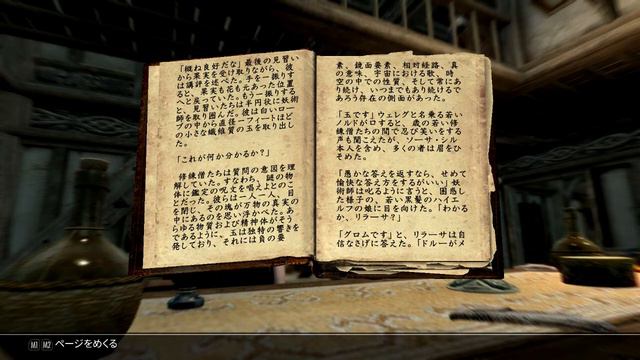 「概ね良好だな」最後の見習い
から果実を受け取りながら、彼
は講評を述べた。手を一振りす
ると、果実も花も元あった位置
へと戻っていた。もう一振りする
と、見習いたちは半円状に妖術
師を取り囲んだ。彼は白いロー
ブの中から直径一フィートほど
の小さな繊維質の玉を取り出し
た。
「これが何か分かるか？」
修練僧たちは質問の意図を理
解していた。すなわち、謎の物
体に鑑定の呪文を唱えよとのこ
とだ。彼らは一人一人、目
を閉じ、その塊が万物の真実の
中にあるのを思い浮かべた。あ
らゆる物質および精神体がそう
であるように、玉は独特の響きを
発しており、それには負の要
素、鏡面要素、相対経路、真
の意味、宇宙における歌、時
空の中での性質、そして常にあ
り続け、いつまでもあり続けるで
あろう存在の側面があった。
「玉です」ウェレグと名乗る若い
ノルドが口すると、歳の若い修
練僧たちの間で忍び笑いをする
声も聞こえたが、ソーサ・シル
本人を含め、多くの者は眉をひ
そめた。
「愚かな答えを返すなら、せめて
愉快な答え方をするがいい」妖術
師は叱るように言うと、困惑し
た様子の、若い黒髪のハイエ
ルフの娘に目を向けた。「わかる
か、リラーサ？」
「グロムです」と、リラーサは自
信なさげに答えた。「ドルーがメ
M1 M2 ページをめくる